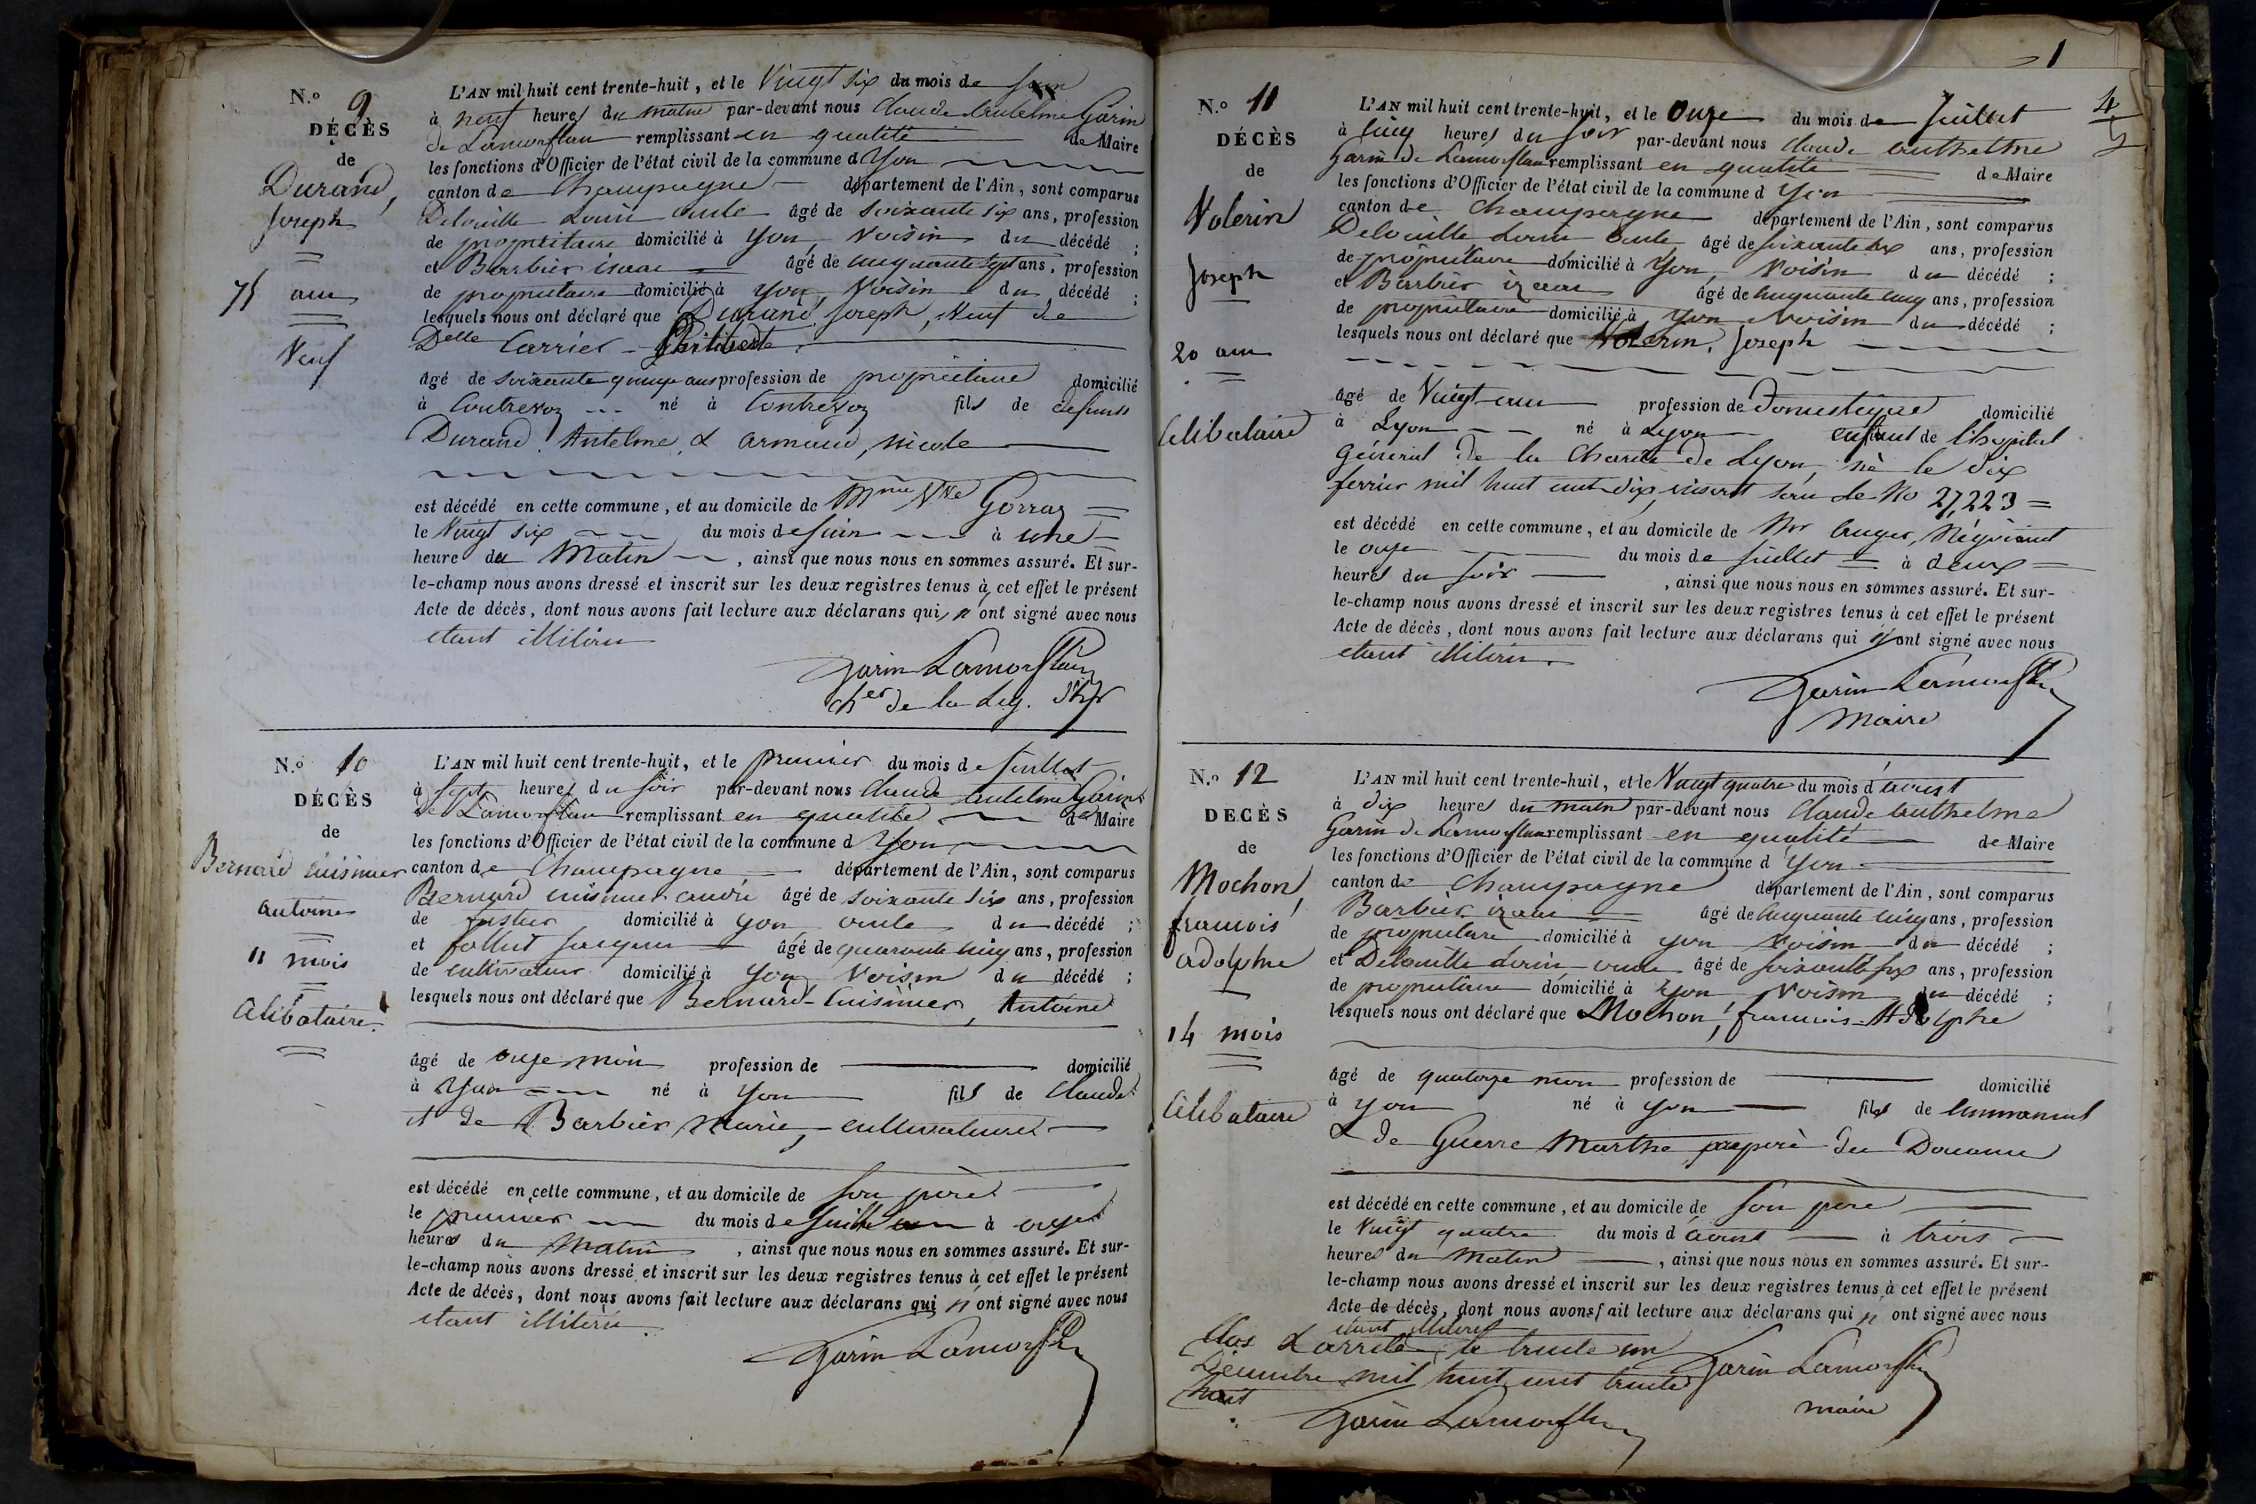 N.º 9
DÉCÈS
de
Durand,
Joseph
75 ans
Veuf
L'AN mil huit cent trente-huit, et le Vingt six du mois de Juin
à neuf heures du matin par-devant nous Claude Antelme Garin
de Lamorflan remplissant en qualité de Maire
les fonctions d'Officier de l'état civil de la commune d Yon
canton de Champagne département de l'Ain, sont comparus
Delouille Louis oncle âgé de soixante six ans, profession
de propriétaire domicilié à Yon, Voisin du décédé ;
et Barbier isaac âgé de cinquante sept ans, profession
de propriétaire domicilié à yon, Voisin du décédé ;
lesquels nous ont déclaré que Durand Joseph, Veuf de
Delle Carrier Philiberte
âgé de soixante quinze ans profession de propriétaire domicilié
à Contrevoz né à Contrevoz fils de defunts
Durand Antelme & armand, nicole
est décédé en cette commune, et au domicile de Mme Vve Gorraz
le Vingt six du mois de Juin à une
heure du Matin, ainsi que nous nous en sommes assuré. Et sur-
le-champ nous avons dressé et inscrit sur les deux registres tenus à cet effet le présent
Acte de décès, dont nous avons fait lecture aux déclarans qui n'ont signé avec nous
etant illitérés
Garin Lamorflan
cher de la Leg. d'hr
N.º 10
DÉCÈS
de
Bernard Cuisinier
antoine
11 mois
Celibataire
L'AN mil huit cent trente-huit, et le premier du mois de Juillet
à sept heures du soir par-devant nous Claude Antelme Garin
de Lamorflan remplissant en qualité de Maire
les fonctions d'Officier de l'état civil de la commune d Yon
canton de Champagne département de l'Ain, sont comparus
Bernard cuisinier andré âgé de soixante six ans, profession
de domicilié à yon, oncle du décédé ;
et follut Jacques âgé de quarante cinq ans, profession
de cultivateur domicilié à Yon, Voisin du décédé ;
lesquels nous ont déclaré que Bernard-Cuisinier, Antoine
âgé de onze mois profession de domicilié
à Yon né à Yon fils de Claude
et de Barbier Marie, cultivateurs
est décédé en cette commune, et au domicile de son père
le premier du mois de Juillet à onze
heures du Matin, ainsi que nous nous en sommes assuré. Et sur-
le-champ nous avons dressé et inscrit sur les deux registres tenus à cet effet le présent
Acte de décès, dont nous avons fait lecture aux déclarans qui n'ont signé avec nous
etant illitérés.
Garin Lamorflan
1
N.º 11
DÉCÈS
de
Volerin
Joseph
20 ans
Celibataire
L'AN mil huit cent trente-huit, et le Onze du mois de Juillet
à cinq heures du soir par-devant nous Claude anthelme
Garin de Lamorflan remplissant en qualité de Maire
les fonctions d'Officier de l'état civil de la commune d Yon
canton de Champagne département de l'Ain, sont comparus
Delouille Louis oncle âgé de soixante six ans, profession
de propriétaire domicilié à Yon, Voisin du décédé ;
et Barbier izaac âgé de cinquante cinq ans, profession
de propriétaire domicilié à yon Voisin du décédé ;
lesquels nous ont déclaré que Volerin, Joseph
âgé de Vingt ans profession de Domestique domicilié
à Lyon né à Lyon enfant de l'hopital
Géneral de la Charité de Lyon, né le dix
fevrier mil huit cent dix, inscrit sous le No 27,223
est décédé en cette commune, et au domicile de Mr Auger, Négociant
le onze du mois de Juillet à deux
heures du soir, ainsi que nous nous en sommes assuré. Et sur-
le-champ nous avons dressé et inscrit sur les deux registres tenus à cet effet le présent
Acte de décès, dont nous avons fait lecture aux déclarans qui n'ont signé avec nous
etant illitérés.
Garin Lamorflan
Maire
N.º 12
DECÈS
de
Mochon,
francois
adolphe
14 mois
Célibataire
L'AN mil huit cent trente-huit, et le Vingt quatre du mois d'aoust
à dix heures du matin par-devant nous Claude anthelme
Garin de Lamorflan remplissant en qualité de Maire
les fonctions d'Officier de l'état civil de la commune d Yon
canton de Champagne département de l'Ain, sont comparus
Barbier izaac âgé de cinquante cinq ans, profession
de propriétaire domicilié à yon Voisin du décédé ;
et Delouille Louis oncle âgé de soixante six ans, profession
de propriétaire domicilié à Yon Voisin du décédé ;
lesquels nous ont déclaré que Mochon, francois-Adolphe
âgé de quatorze mois profession de domicilié
à yon né à yon fils de Emmanuel
& de Guerre Marthe préposé des Douanes
est décédé en cette commune, et au domicile de son père
le Vingt quatre du mois d'aoust à trois
heures du Matin, ainsi que nous nous en sommes assuré. Et sur-
le-champ nous avons dressé et inscrit sur les deux registres tenus à cet effet le présent
Acte de décès, dont nous avons fait lecture aux déclarans qui n'ont signé avec nous
etant illitérés
Clos & arrêté le trente un
Décembre mil huit cent trente
huit
Garin Lamorflan
maire
Garin Lamorflan